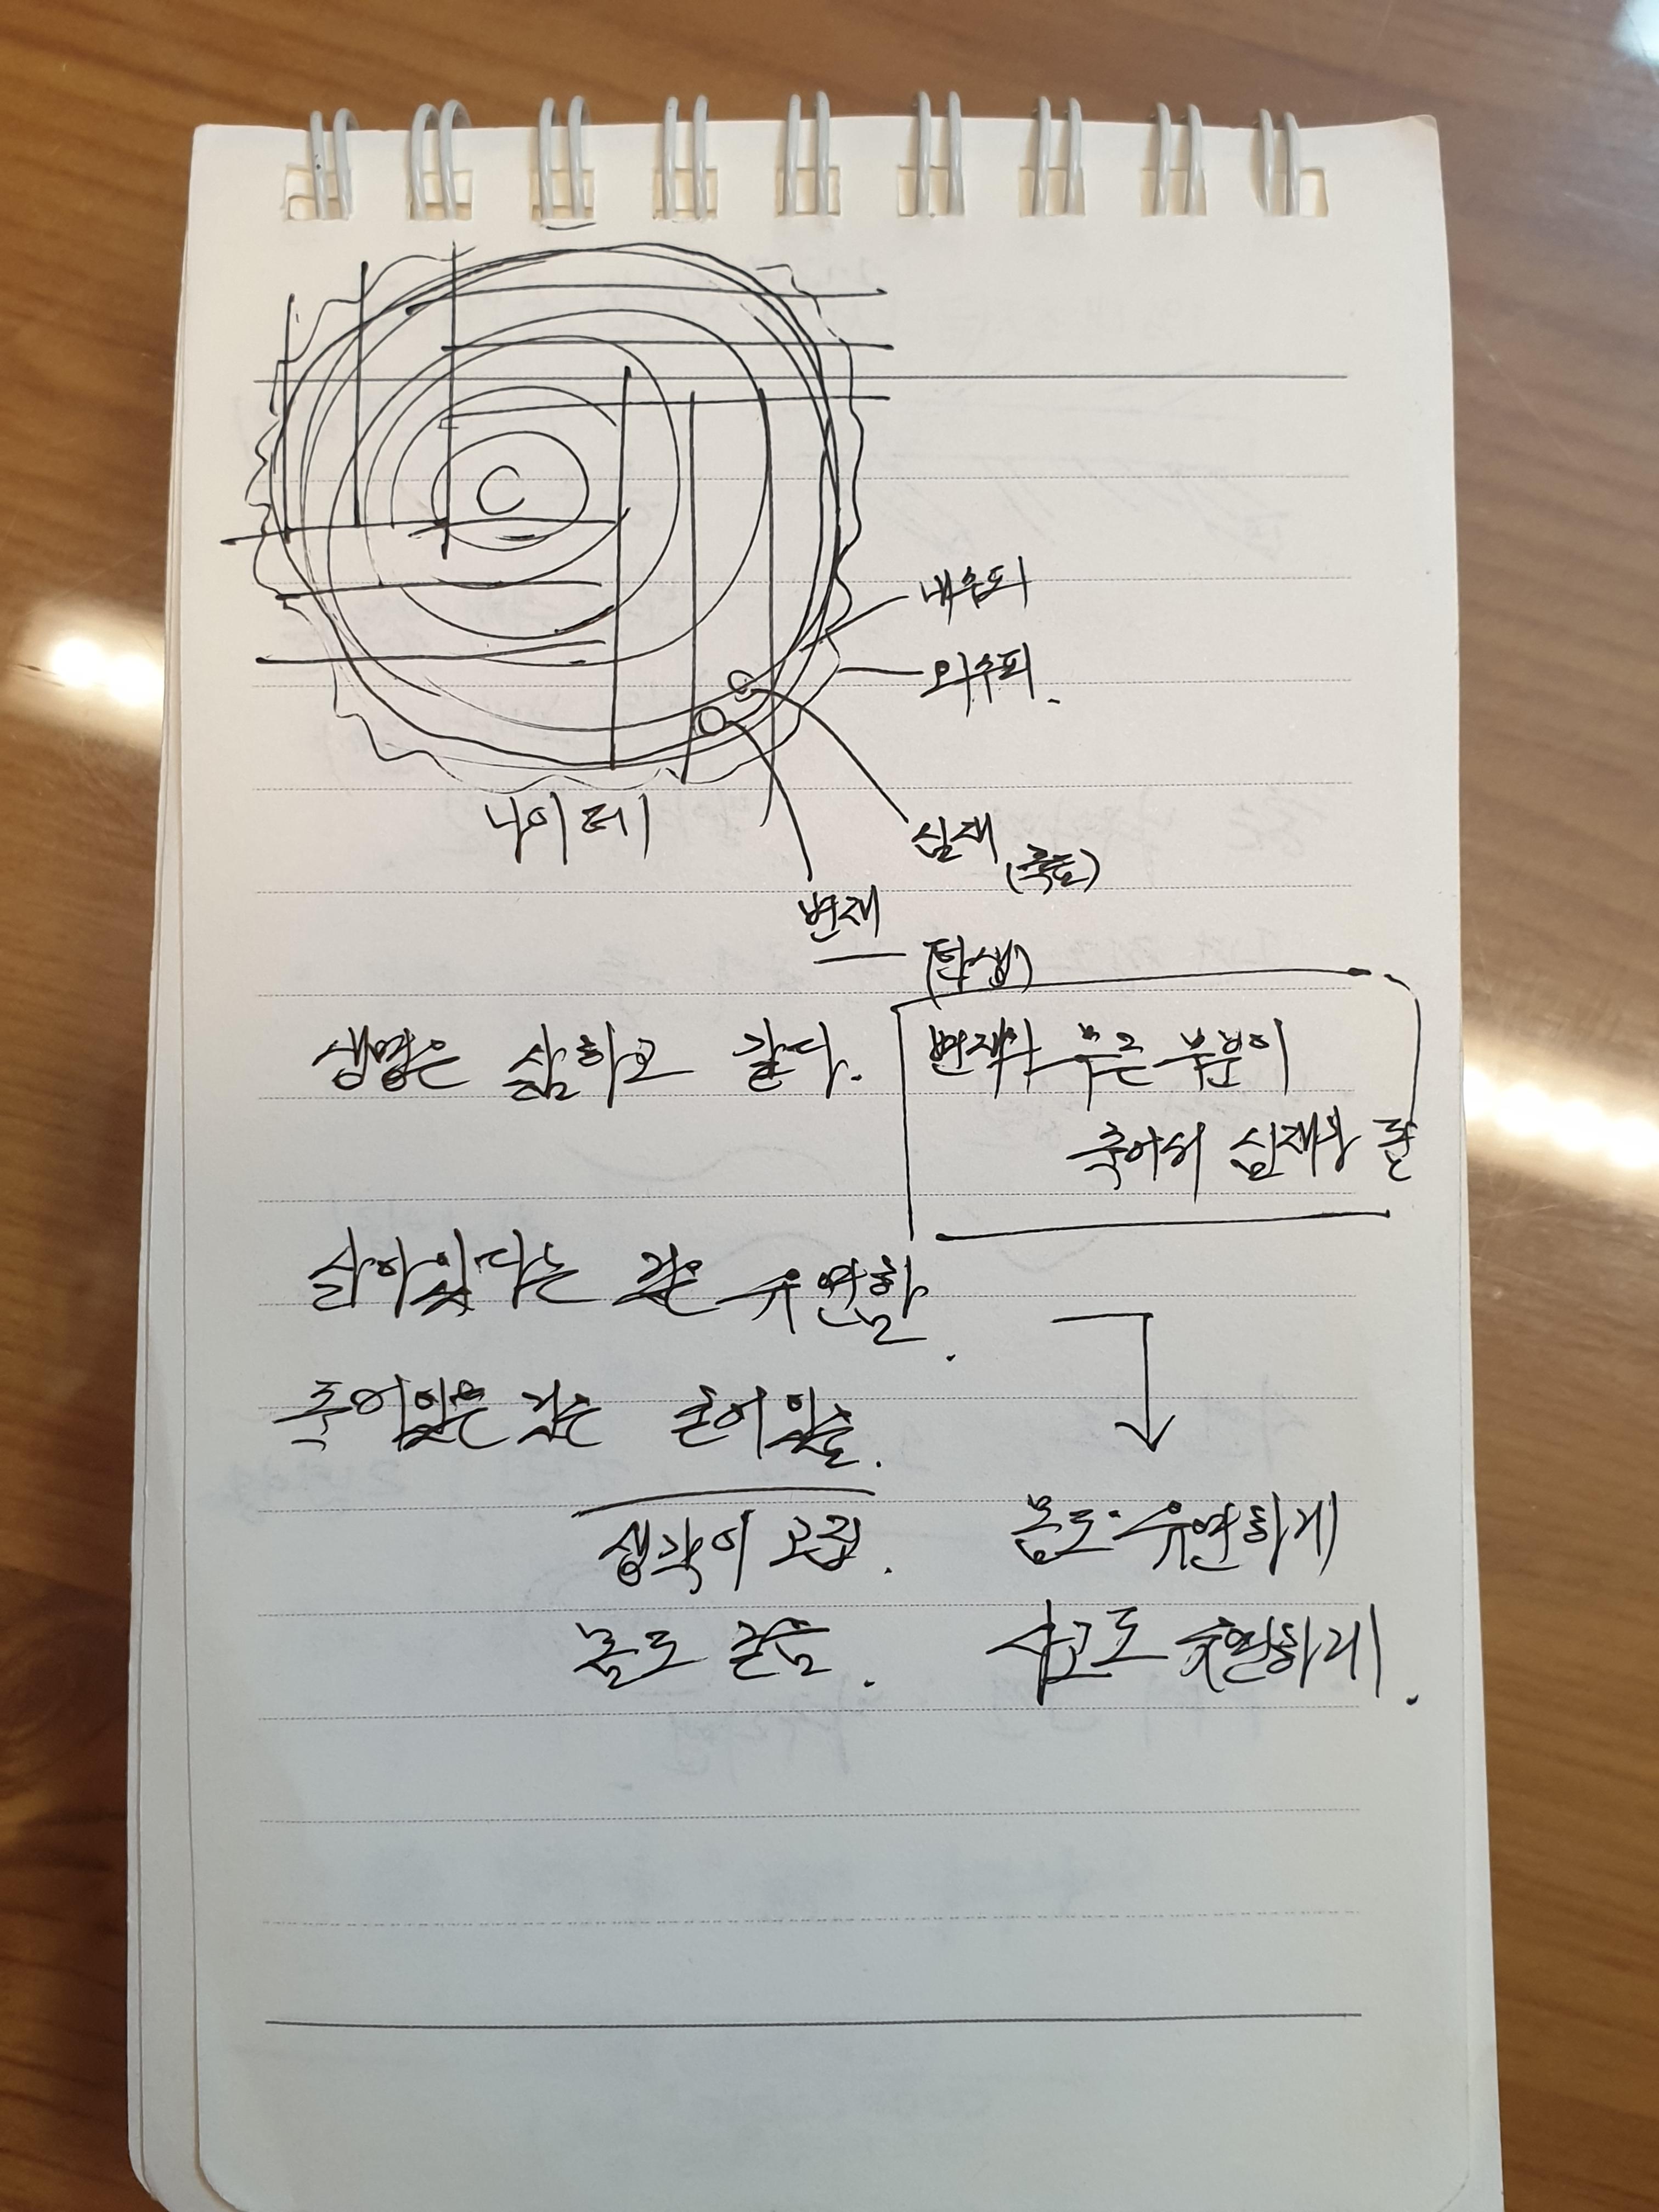 내수피
외수피.
나이테
심재
변재
(탄생)
생명은 심하고 같다.
변재의 무른 부분이
죽어서 심재가 됨
살아있다는 것은 유연함.
죽어있은 것은 굳어있음.
생각이 고집.
몸도 굳음.
몸도 유연하게
사고도 유연하게.